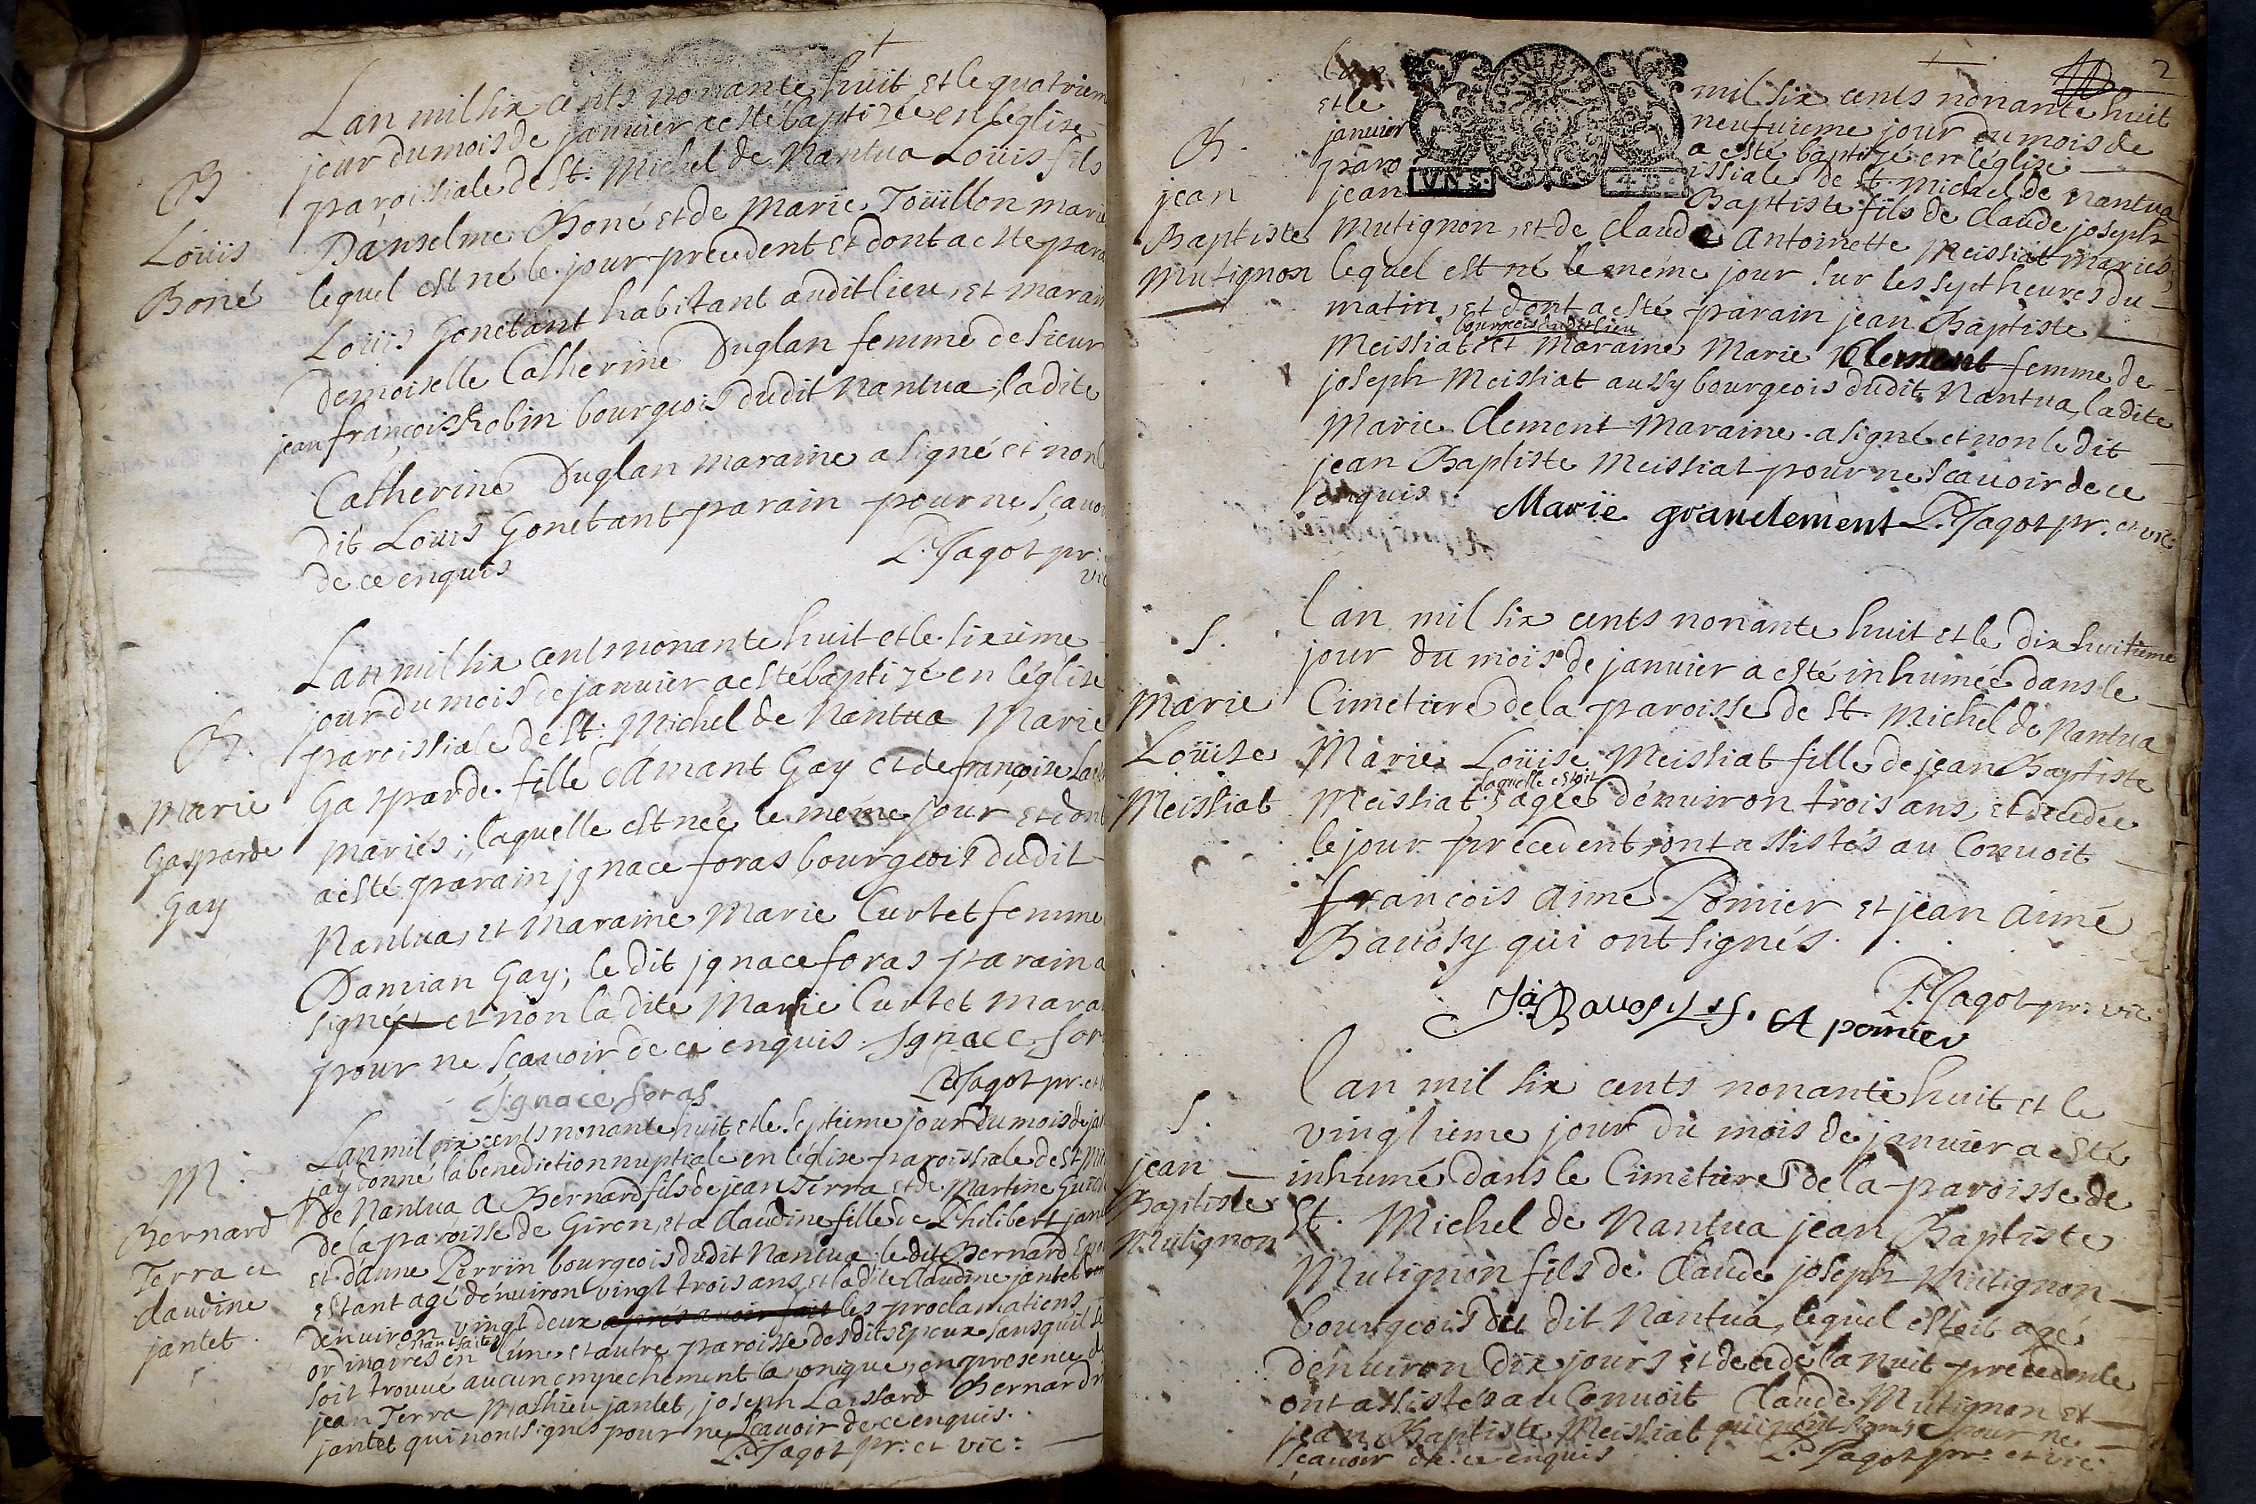 Lan mil six cents nonante huit et le quatriem
jour du mois de janvier a esté baptizé en léglise
paroissiale de St. Michel de Nantua Loüis fils
D'anselme Boné et de Marie Toüillon marie
lequel est né le jour precedent et dont a este para
Loüis Gonetant habitant audit lieu, et marain
demoiselle Catherine Duglan femme de Sieur
jean françois Robin bourgeois dudit Nantua, la dite
Catherine Duglan maraine a signé et non l
dit Loüis Gonetant parain pour ne sçavoi
de ce enquis P. Jagot pr:
vic
B
Loüis
Boné
Lan mil six cents nonante huit et le sixième
jour du mois de janvier a esté baptizé en léglise
paroissiale de St: Michel de Nantua Marie
Gasparde fille d'Amant Gay et de françoise
mariés; laquelle est neé le même jour, et dont
a esté parain jgnace foras bourgeois dudit
Nantua, et Maraine Marie Curtet femme
Damian Gay; le dit jgnace foras parain a
signé et et non la dite Marie Curtet mara
pour ne sçavoir de ce enquis. Jgnace for
Jgnace foras P. Jagot pr. et
B.
Marie
Gasparde
Gay
Lan mil six cents nonante huit et le septième jour du mois de ja
jay donné la benediction nuptiale en léglise paroissiale de St Mi
de Nantua a Bernard fils de jean Terra et de Martine
de la paroisse de Giron, et a Claudine fille de Philibert jan
et d'anne Perrin bourgeois dudit Nantua le dit Bernard
estant agé dénviron vingt trois ans, et la dite Claudine jantet
dénviron vingt deux après avoir fait les proclamations
estant faites
ordinaires en lúne et autre paroisse desdits epoux sans quil s
soit trouvé aucun empechement canonique, en presence d
jean Terra Mathieu jantet, joseph Laissard Bernard
jantet qui nont signés pour ne scavoir de ce enquis.
P. Jagot pr: et vic:
M.
Bernard
Terra et
claudine
jantet.
2
Lan mil six cents nonante huit
et le neufvieme jour du mois de
janvier a esté baptizé en léglise
paroissiale de St. Michel de Nantua
jean Baptiste fils de Claude joseph
Mutignon, et de Claude Antoinette Meissiat mariés,
lequel est né le même jour sur les sept heures du
matin, et dont a esté parain jean Baptiste
bourgeois dudit lieu
Meissiat et Maraine Marie Clement femme de
joseph Meissiat aussy bourgeois dudit Nantua, la dite
Marie Clement Maraine a signé et non le dit
jean Baptiste Meissiat pour ne scavoir de ce
enquis. Marië granclement P. Jagot pr. et vic:
B.
jean
Baptiste
Mutignon
Lan mil six cents nonante huit et le dix huitieme
jour du mois de janvier a esté inhumée dans le
Cimetiere de la paroisse de St. Michel de Nantua
Marie Loüise Meissiat fille de jean Baptiste
laquelle estoit
Meissiat, agée dénviron trois ans, et decedée
le jour precedent, ont assistés au Convoit
françois aimé Pomier et jean aimé
Bavosy qui ont signés.
P. Jagot pr: vic:
J. a Bavosy fA pomier
S.
Marie
Loüise
Meissiat
Lan mil six cents nonante huit et le
vingtieme jour du mois de janvier a esté
inhumé dans le Cimetiere de la paroisse de
St. Michel de Nantua jean Baptiste
Mutignon fils de Claude joseph Mutignon
bourgeois du dit Nantua, lequel estoit agé
dénviron dix jours et decedé la nuit precedente
ont assistés au Convoit Claude Mutignon et
jean Baptiste Meissiat qui n'ont signé pour ne
scavoir de ce enquis P. Jagot pr: et vic:
S.
jean
Baptiste
Mutignon